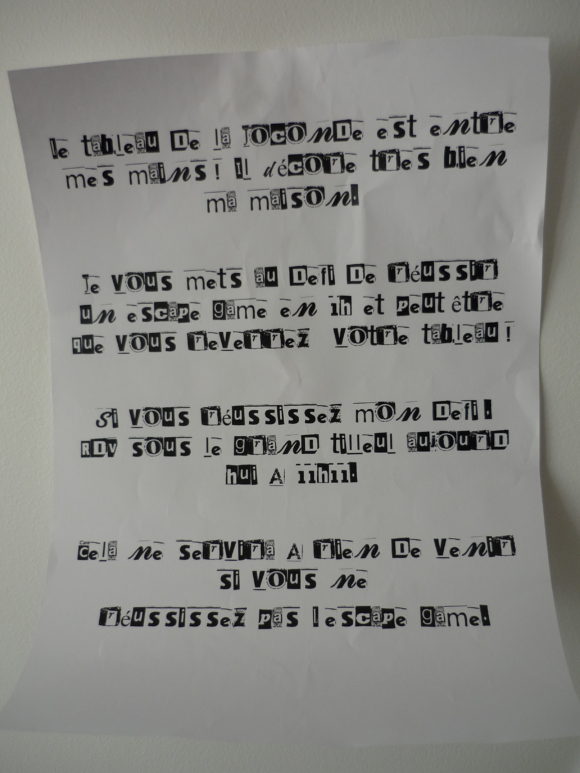 le tableau De la JOCONDe est entre
mes mains ! il décore tres bien
ma maison!
Je vous mets au Defi De réussir
un escape game en 1h et peut être
que vous reverrez votre tableau !
Si vous réussissez mon Defi !
RDV sous le grand tilleul aujourd
hui A 11h11!
Cela ne servira A rien De venir
si vous ne
réussissez pas l escape game!